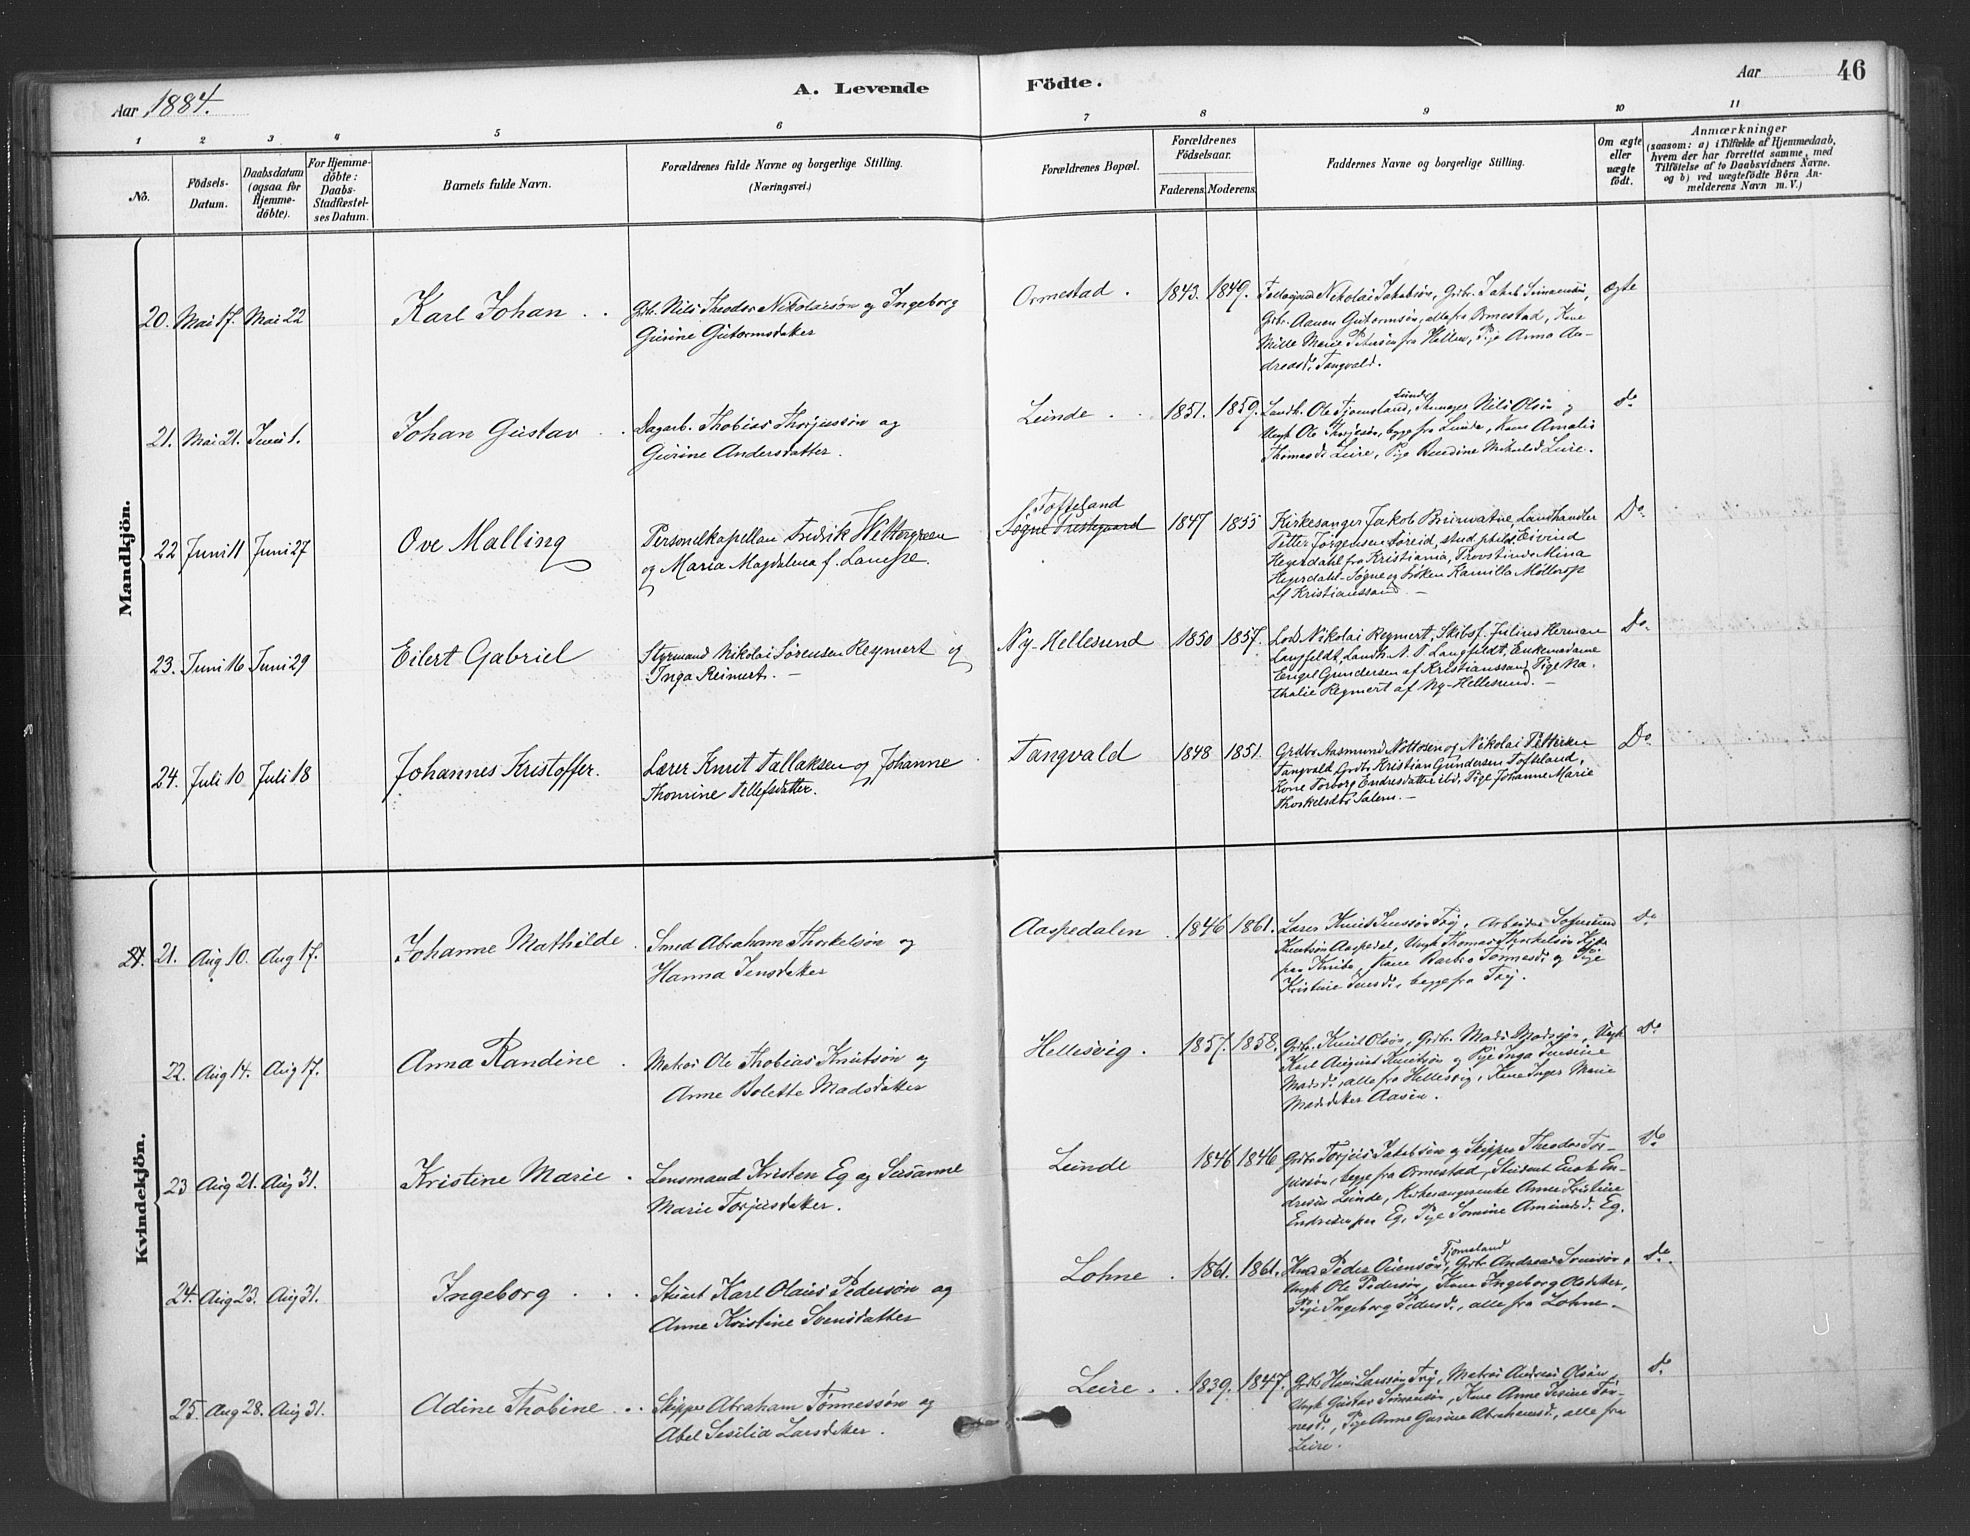 Aar 1884.
A. Levende
Födte.
Aar
46
1 2 3 4 5 6 7 8 9 10 11
No.
Födsels-
Datum.
Daabsdatum
(ogsaa for
Hjemme-
döbte).
For Hjemme-
döbte:
Daabs-
Stadfæstel-
ses Datum.
Barnets fulde Navn.
Forældrenes fulde Navne og borgerlige Stilling.
(Næringsvei.)
Forældrenes Bopæl.
Forældrenes
Födselsaar.
Faderens. Moderens.
Faddernes Navne og borgerlige Stilling.
Om ægte
eller
uægte
født.
Anmærkninger
(saasom: a) i Tilfælde af Hjemmedaab,
hvem der har forrettet samme, med
Tilföielse af to Daabsvidners Navne.
og b) ved uægtefödte Börn An-
melderens Navn m. V.)
Mandkjön.
20. Mai 17. Mai 22
Karl Johan
Grb. Nils Theodor Nikolaisøn og Ingeborg
Gurine Gutormsdatter
Ormestad.
1843. 1849.
Nikolai Jakobsøn, Grbr. Jakob
Grbr. Aanen Gutormsøn, alle fra Ormestad, Kone
Mille Marie Petersen fra Hellen, Pige Anna An-
dreasd. Tangvald.
ægte
21. Mai 21. Juni 1.
Johan Gustav
Dagarb. Thobias Thorjussøn og
Gurine Andersdatter.
Lunde
1851. 1859.
Lunde
Landh. Ole Tjomsland, Nils Olsøn og
Ungk. Ole Thorjesøn, begge fra Lunde, Kone Amalie
Thomasd. Leire, Pige Bendine Leire.
do
22 Juni 11 Juni 27
Ove Malling
Personelkapellan Fredrik Wettergreen
og Maria Magdalena f. Lampe.
Tofteland
Søgne Prestegaard
1847 1855
Kirkesanger Jakob Bruvatne, Landhandler
Petter Jørgensen Søreid, stud. philos. Eivind
Heyerdahl fra Kristiania, Provstinde Mina
Heyerdahl-Søgne og Frøken Kamilla Møllerop
af Kristianssand.
Do.
23. Juni 16 Juni 29
Eilert Gabriel
Styrmand Nikolai Sørensen Reymert og
Inga Reimert.
Ny-Hellesund
1850 1857.
Lods Nikolai Reymert, Skibsf. Julius Herman
Langfeldt, Landh. N. P. Langfeldt, Enkemadame
Engel Gundersen af Kristianssand, Pige Na-
thalie Reymert af Ny-Hellesund.
Do.
24. Juli 10 Juli 18
Johannes Kristoffer.
Lærer Knut Tallaksen og Johanne
Thomine Tellefsdatter.
Tangvald
1848 1851.
Grdbr. Aasmund Nottosen og Nikolai
Tangvald, Grdbr. Kristian Gundersen Tofteland,
Kone Torborg Endresdatter ibid, Pige Johanne Marie
Thorkelsdtr Salem.
Do
Kvindekjön.
21. 21. Aug 10. Aug 17.
Johanne Mathilde
Smed Abraham Thorkelsøn og
Hanna Jensdatter
Aaspedalen
1846 1861.
Lærer Knud Jenssøn Try, Arbeider
Knutsøn Aaspedal, Ungk. Thomas Thorkelsøn
fra Knibe, Kone Barbro Tønnesd. og Pige
Kristine Jensd., begge fra Try.
do
22. Aug 14. Aug 17.
Anna Randine
Matros Ole Thobias Knutsøn og
Anne Bolette Madsdatter
Hellesvig.
1857. 1858.
Grbr. Knut Olsøn, Grbr. Mads Madsøn, Ungk.
Karl August Knutsøn og Pige Inga Jensine
Madsd., alle fra Hellesvig, Kone Inger Marie
Madsdatter Aasen.
do
23 Aug 21. Aug 31.
Kristine Marie
Lensmand Kristen Eg og Susanne
Marie Torjusdatter.
Lunde
1846 1846
Grdbr. Torjus Jakobsøn og Skipper Theodor Tor-
jussøn, begge fra Ormestad, Student Enok En-
dresøn Lunde, Kirkesangerenke Anne Kristine
Endresen fra Eg, Pige Eg.
do
24. Aug 23. Aug 31.
Ingeborg
Stuert Karl Olaus Pedersøn og
Anne Kristine Svensdatter
Lohne
1861. 1861.
Tjomsland
Peder Grbr. Andreas Svensøn,
Ungk. Ole Pedersøn, Kone Ingeborg Olsdatter,
Pige Ingeborg Pedersd., alle fra Lohne.
do
25. Aug 28. Aug 31.
Adine Thobine
Skipper Abraham Tønnessøn og
Abel Sesilia Larsdatter.
Leire.
1839. 1847.
Grdbr. Hans Larssøn Try, Matros Andreas Olsøn,
Ungk. Gustav Kone Anne Tøn-
nesd., Pige Anne Gurine Abrahamsd., alle fra
Leire.
do